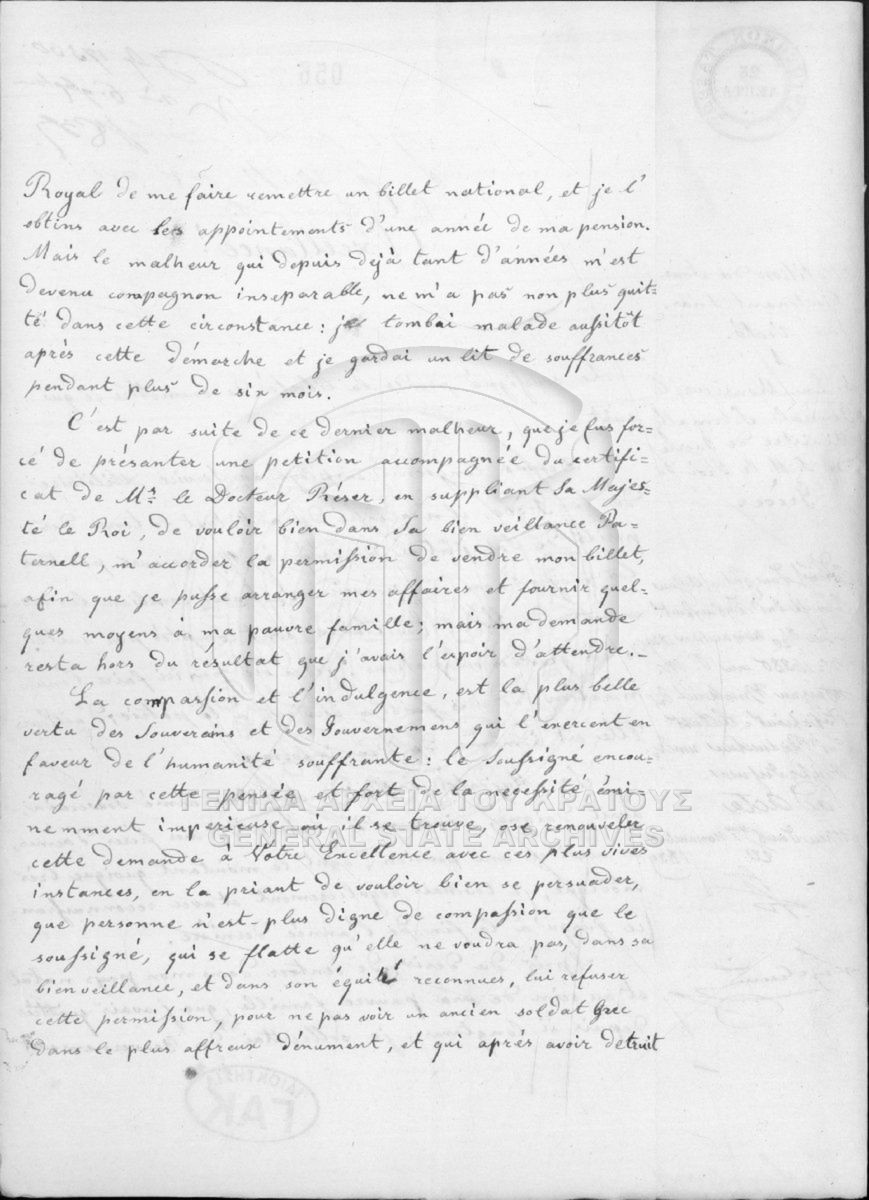 Royal de me faire remettre un billet national, et je l'
obtins avec les appointements d'une année de ma pension.
Mais le malheur qui depuis dejà tant d'années m'est
devenu compagnon inseparable, ne m'a pas non plus quit-
té dans cette circonstance: je tombai malade aussitôt
aprés cette démarche et je gardai un lit de souffrances
pendant plus de six mois.
C'est par suite de ce dernier malheur, que je fus for-
cé de présanter une petition accompagnée du certifi-
cat de Mr. le Docteur Réser, en suppliant Sa Majes-
té le Roi, de vouloir bien dans Sa bien veillance Pa-
ternell, m'accorder la permission de vendre mon billet,
afin que je pusse arranger mes affaires et fournir quel-
ques moyens à ma pauvre famille; mais ma demande
resta hors du résultat que j'avais l'espoir d'attendre._
La compassion et l'indulgence, est la plus belle
vertu des Souverains et des Gouvernemens qui l'exercent en
faveur de l'humanité souffrante: le Soussigné encou-
ragé par cette pensée et fort de la necessité émi-
nemment imperieuse où il se trouve, ose renouveler
cette demande à Votre Excellence avec ces plus vives
instances, en la priant de vouloir bien se persuader,
que personne n'est plus digne de compassion que le
soussigné, qui se flatte qu'elle ne voudra pas, dans sa
bienveillance, et dans son équité reconnues, lui refuser
cette permission, pour ne pas voir un ancien soldat Grec
dans le plus affreux dénument, et qui aprés avoir detruit
ΓΕΝΙΚΑ ΑΡΧΕΙΑ ΤΟΥ ΚΡΑΤΟΥΣ
GENERAL STATE ARCHIVES
ΓΑΚ
056